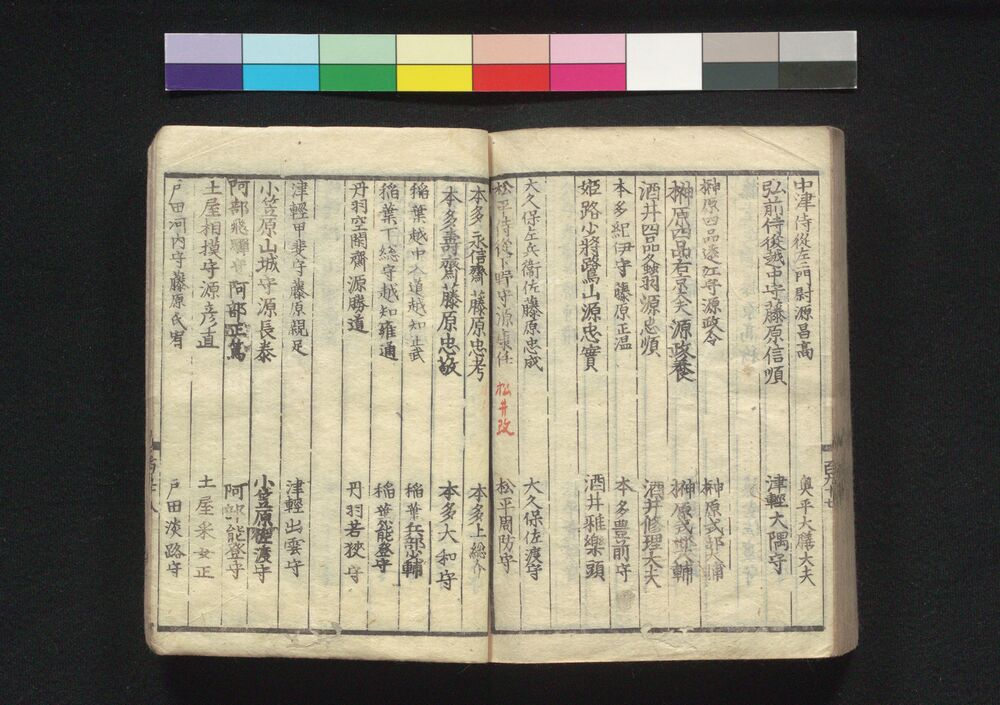 中津侍従左衛門尉源昌高 奥平大膳大夫
弘前侍従越中守藤原信順 津輕大隅守
榊原四品遠江守源政令 榊原式部大輔
榊原四品右京大夫源政養 榊原式部大輔
酒井四品久翁源忠順 酒井修理大夫
本多紀伊守藤原正温 本多豊前守
姫路少將鷺山源忠實 酒井雅樂頭
大久保左兵衛佐藤原忠成 大久保佐渡守
松平侍從下野守源康任 松井改 松平周防守
本多永信齋藤原忠考 本多上総介
本多壽齋藤原忠敬 本多大和守
稲葉越中入道越知正武 稲葉兵部少輔
稲葉下総守越知雍通 稲葉能登守
丹羽空閑齋源勝道 丹羽若狹守
津輕甲斐守藤原親足 津輕出雲守
小笠原山城守源長泰 小笠原佐渡守
阿部飛騨守阿部正篤 阿部能登守
土屋相摸守源彦直 土屋采女正
戸田河内守藤原氏宥 戸田淡路守